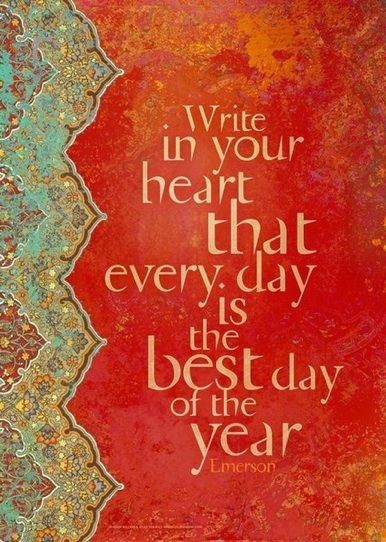 Write
in your
heart
that
every day
is
the
best day
of the
year
Emerson